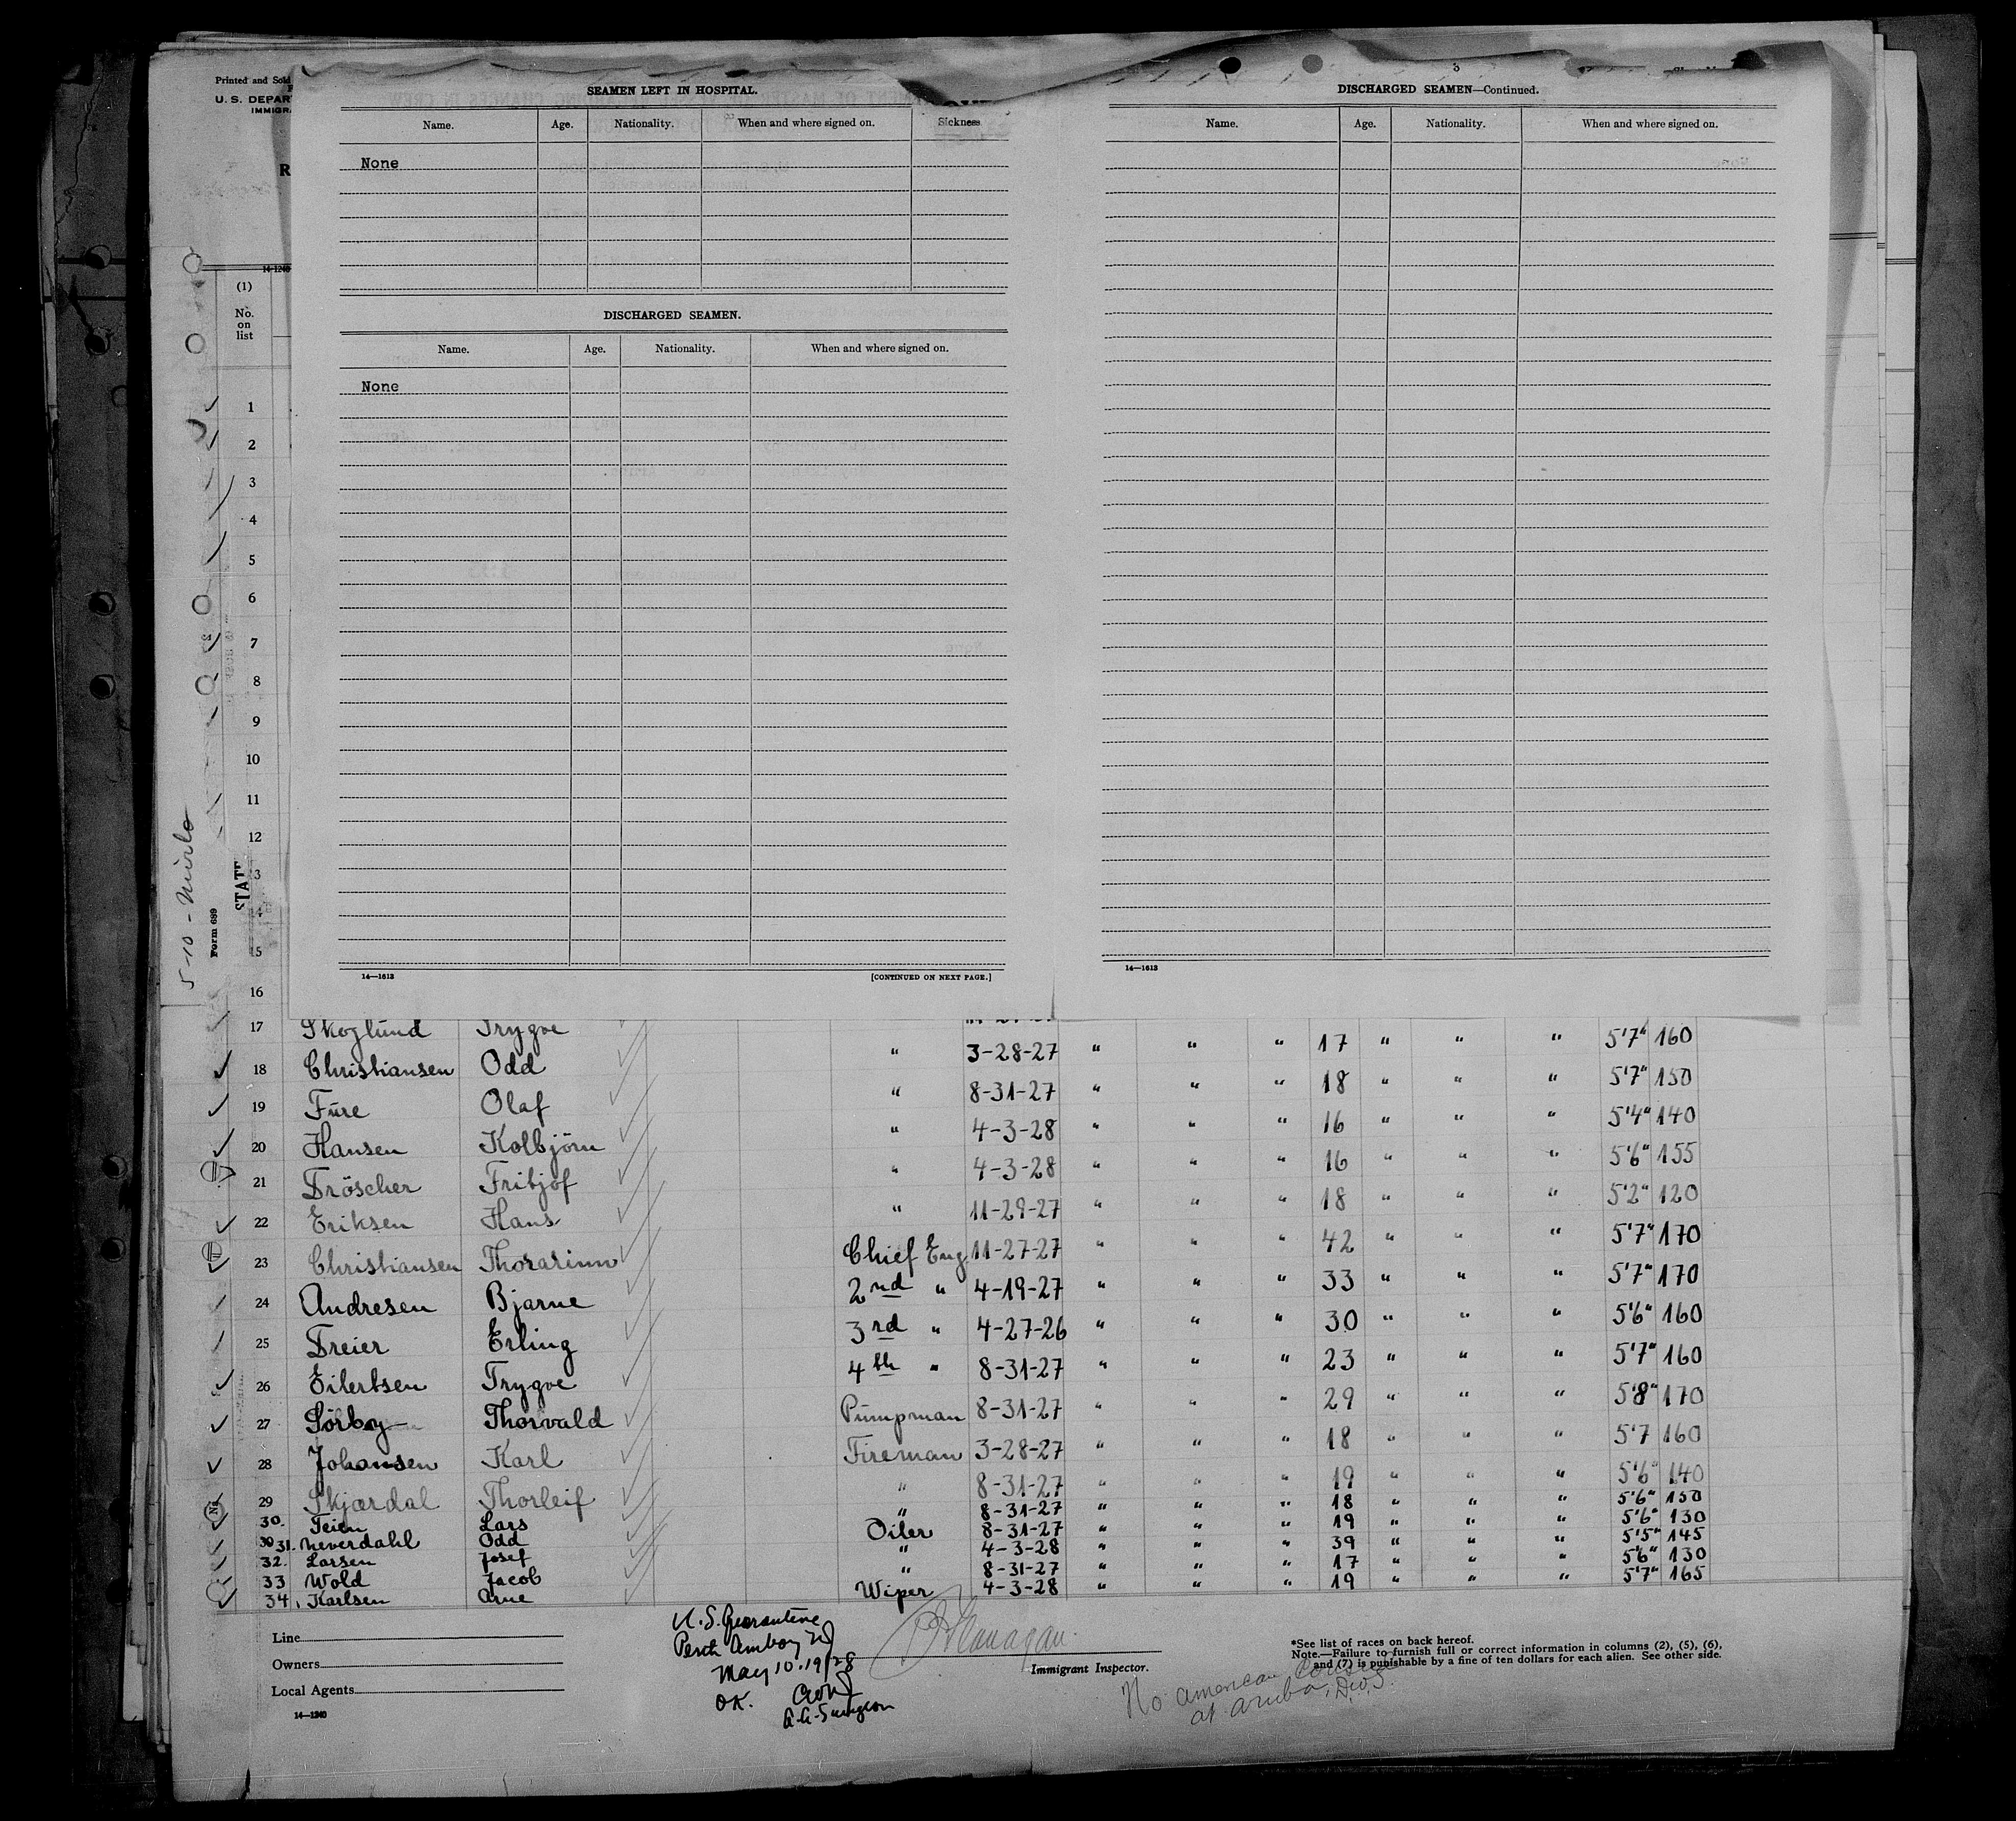 Printed and Sold
U.S. DEPAR
IMMIGRA
R
14-1240
(1)
No.
on
list
SEAMEN LEFT IN HOSPITAL.
Name. Age. Nationality. When and where signed on. Sickness
None
DISCHARGED SEAMEN.
Name. Age. Nationality. When and where signed on.
None
14—1613 [CONTINUED ON NEXT PAGE.]
3
DISCHARGED SEAMEN—Continued.
Name. Age. Nationality. When and where signed on.
14—1613
1
2
3
4
5
6
7
8
9
10
11
12
3
14
15
16
5-10-
Form 689
STATE
17 Skoglund Trygve
18 Christiansen Odd " 3-28-27 " " " 17 " " " 5'7" 160
19 Fure Olaf " 8-31-27 " " " 18 " " " 5'7" 150
20 Hansen Kolbjörn " 4-3-28 " " " 16 " " " 5'4" 140
21 Dröscher Fritjof " 4-3-28 " " " 16 " " " 5'6" 155
22 Eriksen Hans " 11-29-27 " " " 18 " " " 5'2" 120
23 Christiansen Thorarinn Chief Eng. 11-27-27 " " " 42 " " " 5'7" 170
24 Andresen Bjarne 2nd " 4-19-27 " " " 33 " " " 5'7" 170
25 Dreier Erling 3rd " 4-27-26 " " " 30 " " " 5'6" 160
26 Eilertsen Trygve 4th " 8-31-27 " " " 23 " " " 5'7" 160
27 Sörby Thorvald Pumpman 8-31-27 " " " 29 " " " 5'8" 170
28 Johansen Karl Fireman 3-28-27 " " " 18 " " " 5'7 160
29 Skjærdal Thorleif " 8-31-27 " " " 19 " " " 5'6" 140
30. Teien Lars " 8-31-27 " " " 18 " " " 5'6" 150
30 31. Neverdahl Odd Oiler 8-31-27 " " " 19 " " " 5'6" 130
32. Larsen Josef " 4-3-28 " " " 39 " " " 5'5" 145
33 Wold Jacob " 8-31-27 " " " 17 " " " 5'6" 130
34. Karlsen Arne Wiper 4-3-28 " " " 19 " " " 5'7" 165
Line
Owners
Local Agents
14—1240
U.S. Quarantine
Perth Amboy NJ
May 10.1928
OK.
A.A. Surgeon
Flanagan.
Immigrant Inspector.
*See list of races on back hereof.
Note.—Failure to furnish full or correct information in columns (2), (5), (6),
and (7) is punishable by a fine of ten dollars for each alien. See other side.
No American Consul
at Aruba, D.W.I.